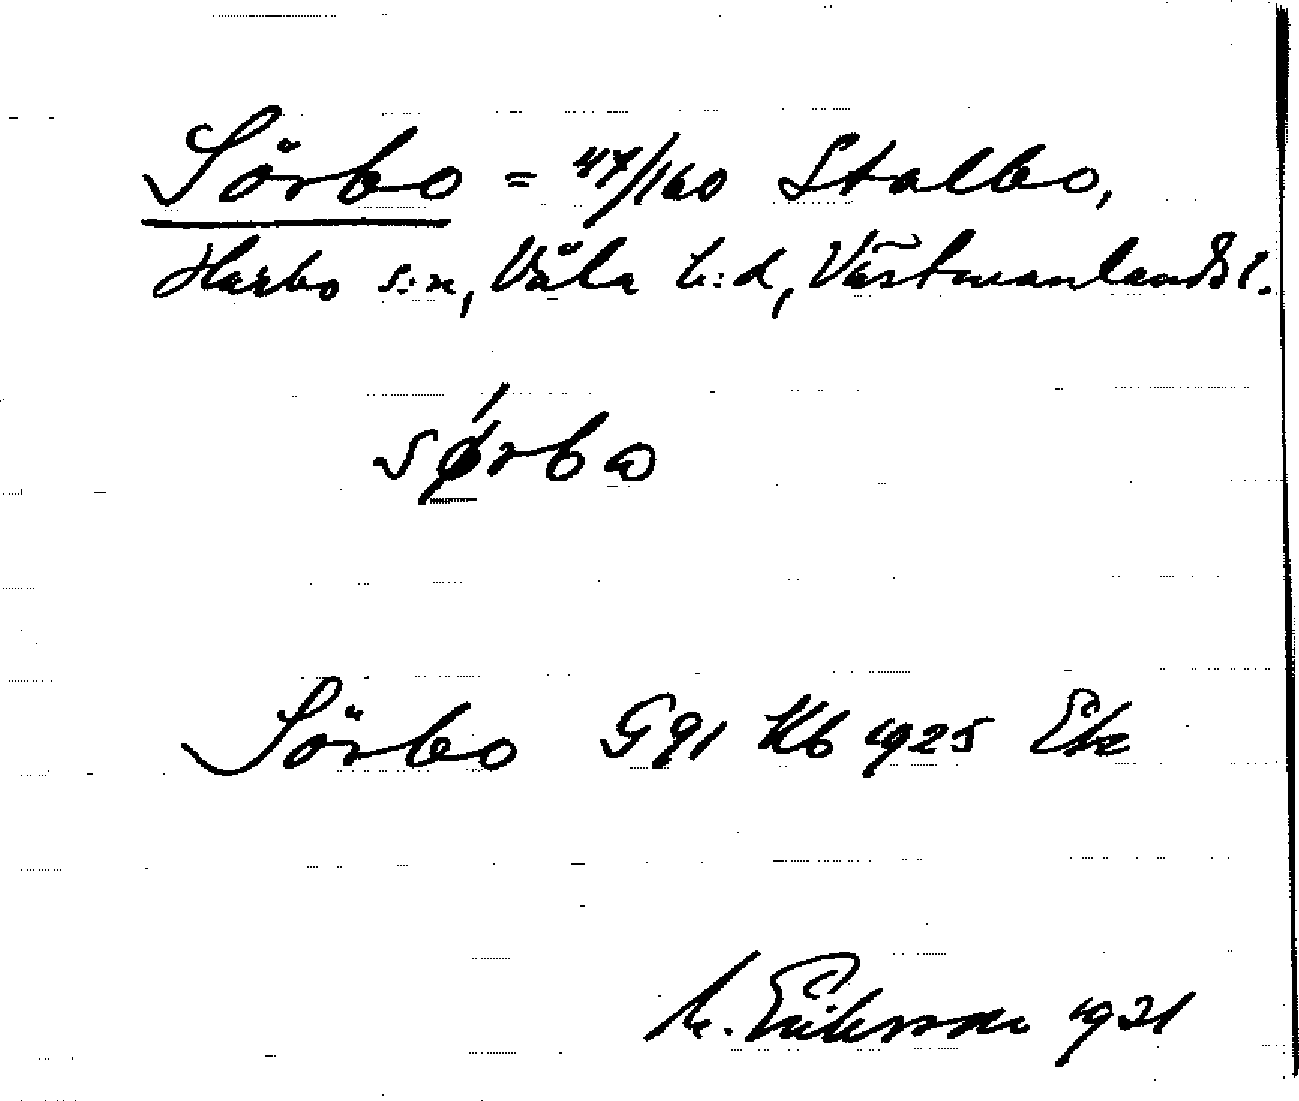 Sörbo = 47/160 Stalbo,
Harbo s:n, Våla h:d, Västmanlands l.
sørbo
Sörbo G 91 Kb 1925 Ek
M. Eriksson 1931